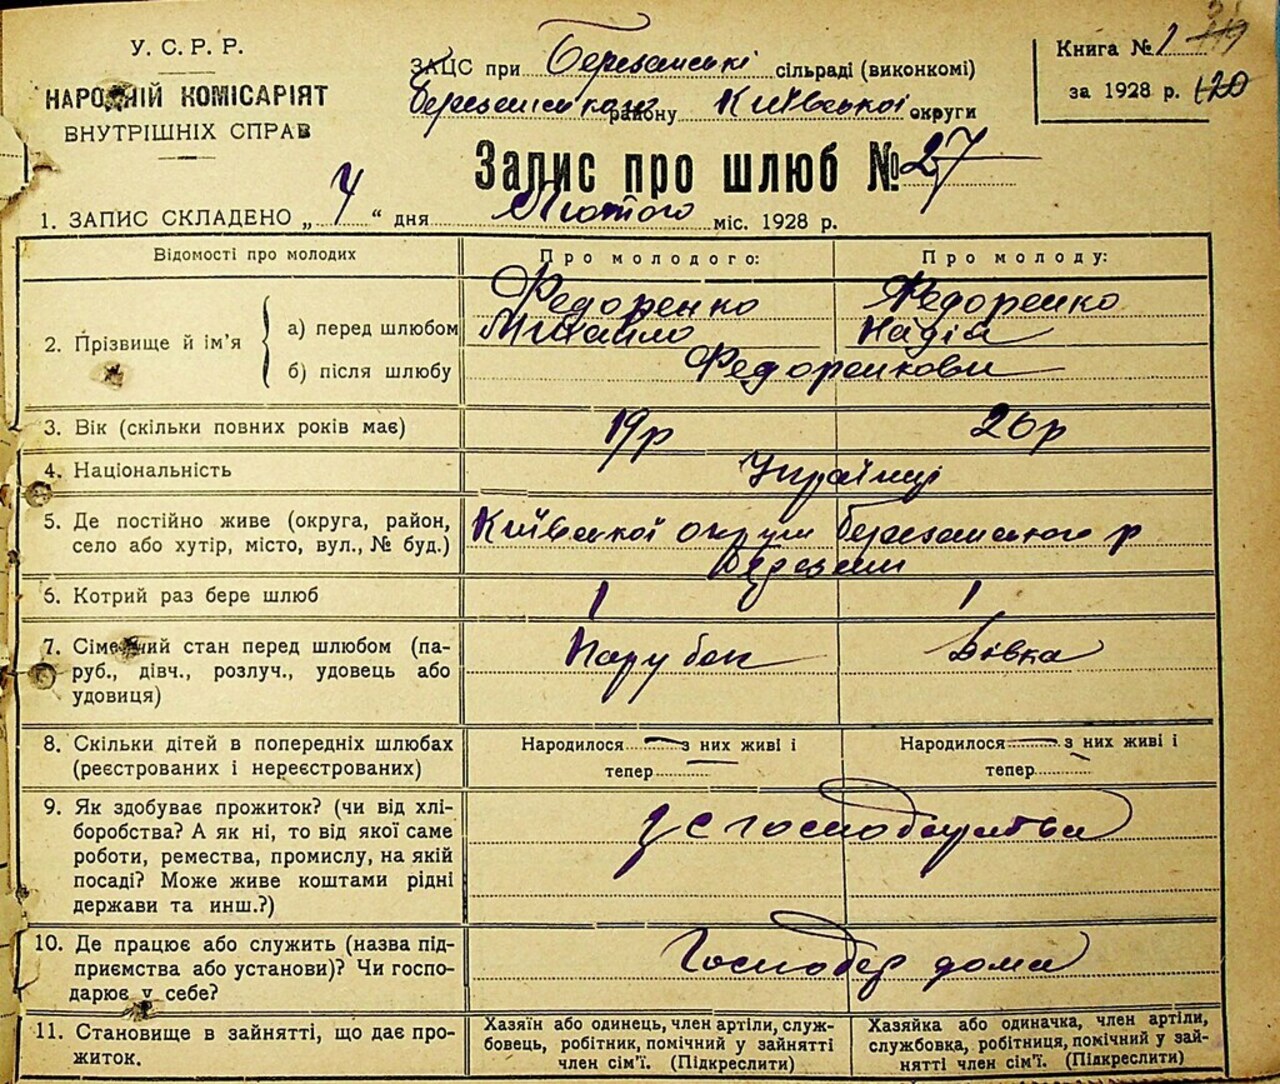 У. С. Р. Р.
НАРОДНІЙ КОМІСАРІЯТ
ВНУТРІШНІХ СПРАВ
ЗАЦС при Березанські сільраді (виконкомі)
району Київської округи
Книга № 1
за 1928 р. 120
Запис про шлюб № 27
1. ЗАПИС СКЛАДЕНО „ 4 “ дня Лютого міс. 1928 р.
Відомості про молодих
Про молодого:
Про молоду:
2. Прізвище й ім'я
а) перед шлюбом
Федоренко
Михайло
Федоренко
Надія
б) після шлюбу
Федоренкови
3. Вік (скільки повних років має)
19р
26р
4. Національність
Українці
5. Де постійно живе (округа, район,
село або хутір, місто, вул., № буд.)
Київської округи Березанського р
Березані
6. Котрий раз бере шлюб
1
1
7. Сімейний стан перед шлюбом (па-
руб., дівч., розлуч., удовець або
удовиця)
Парубок
Дівка
8. Скільки дітей в попередніх шлюбах
(реєстрованих і нереєстрованих)
Народилося — з них живі і
тепер —
Народилося — з них живі і
тепер —
9. Як здобуває прожиток? (чи від хлі-
боробства? А як ні, то від якої саме
роботи, ремества, промислу, на якій
посаді? Може живе коштами рідні
держави та инш.?)
10. Де працює або служить (назва під-
приємства або установи)? Чи госпо-
дарює у себе?
дома
11. Становище в зайнятті, що дає про-
житок.
Хазяїн або одинець, член артіли, служ-
бовець, робітник, помічний у зайнятті
член сім'ї. (Підкреслити)
Хазяйка або одиначка, член артіли,
службовка, робітниця, помічний у зай-
нятті член сім'ї. (Підкреслити)